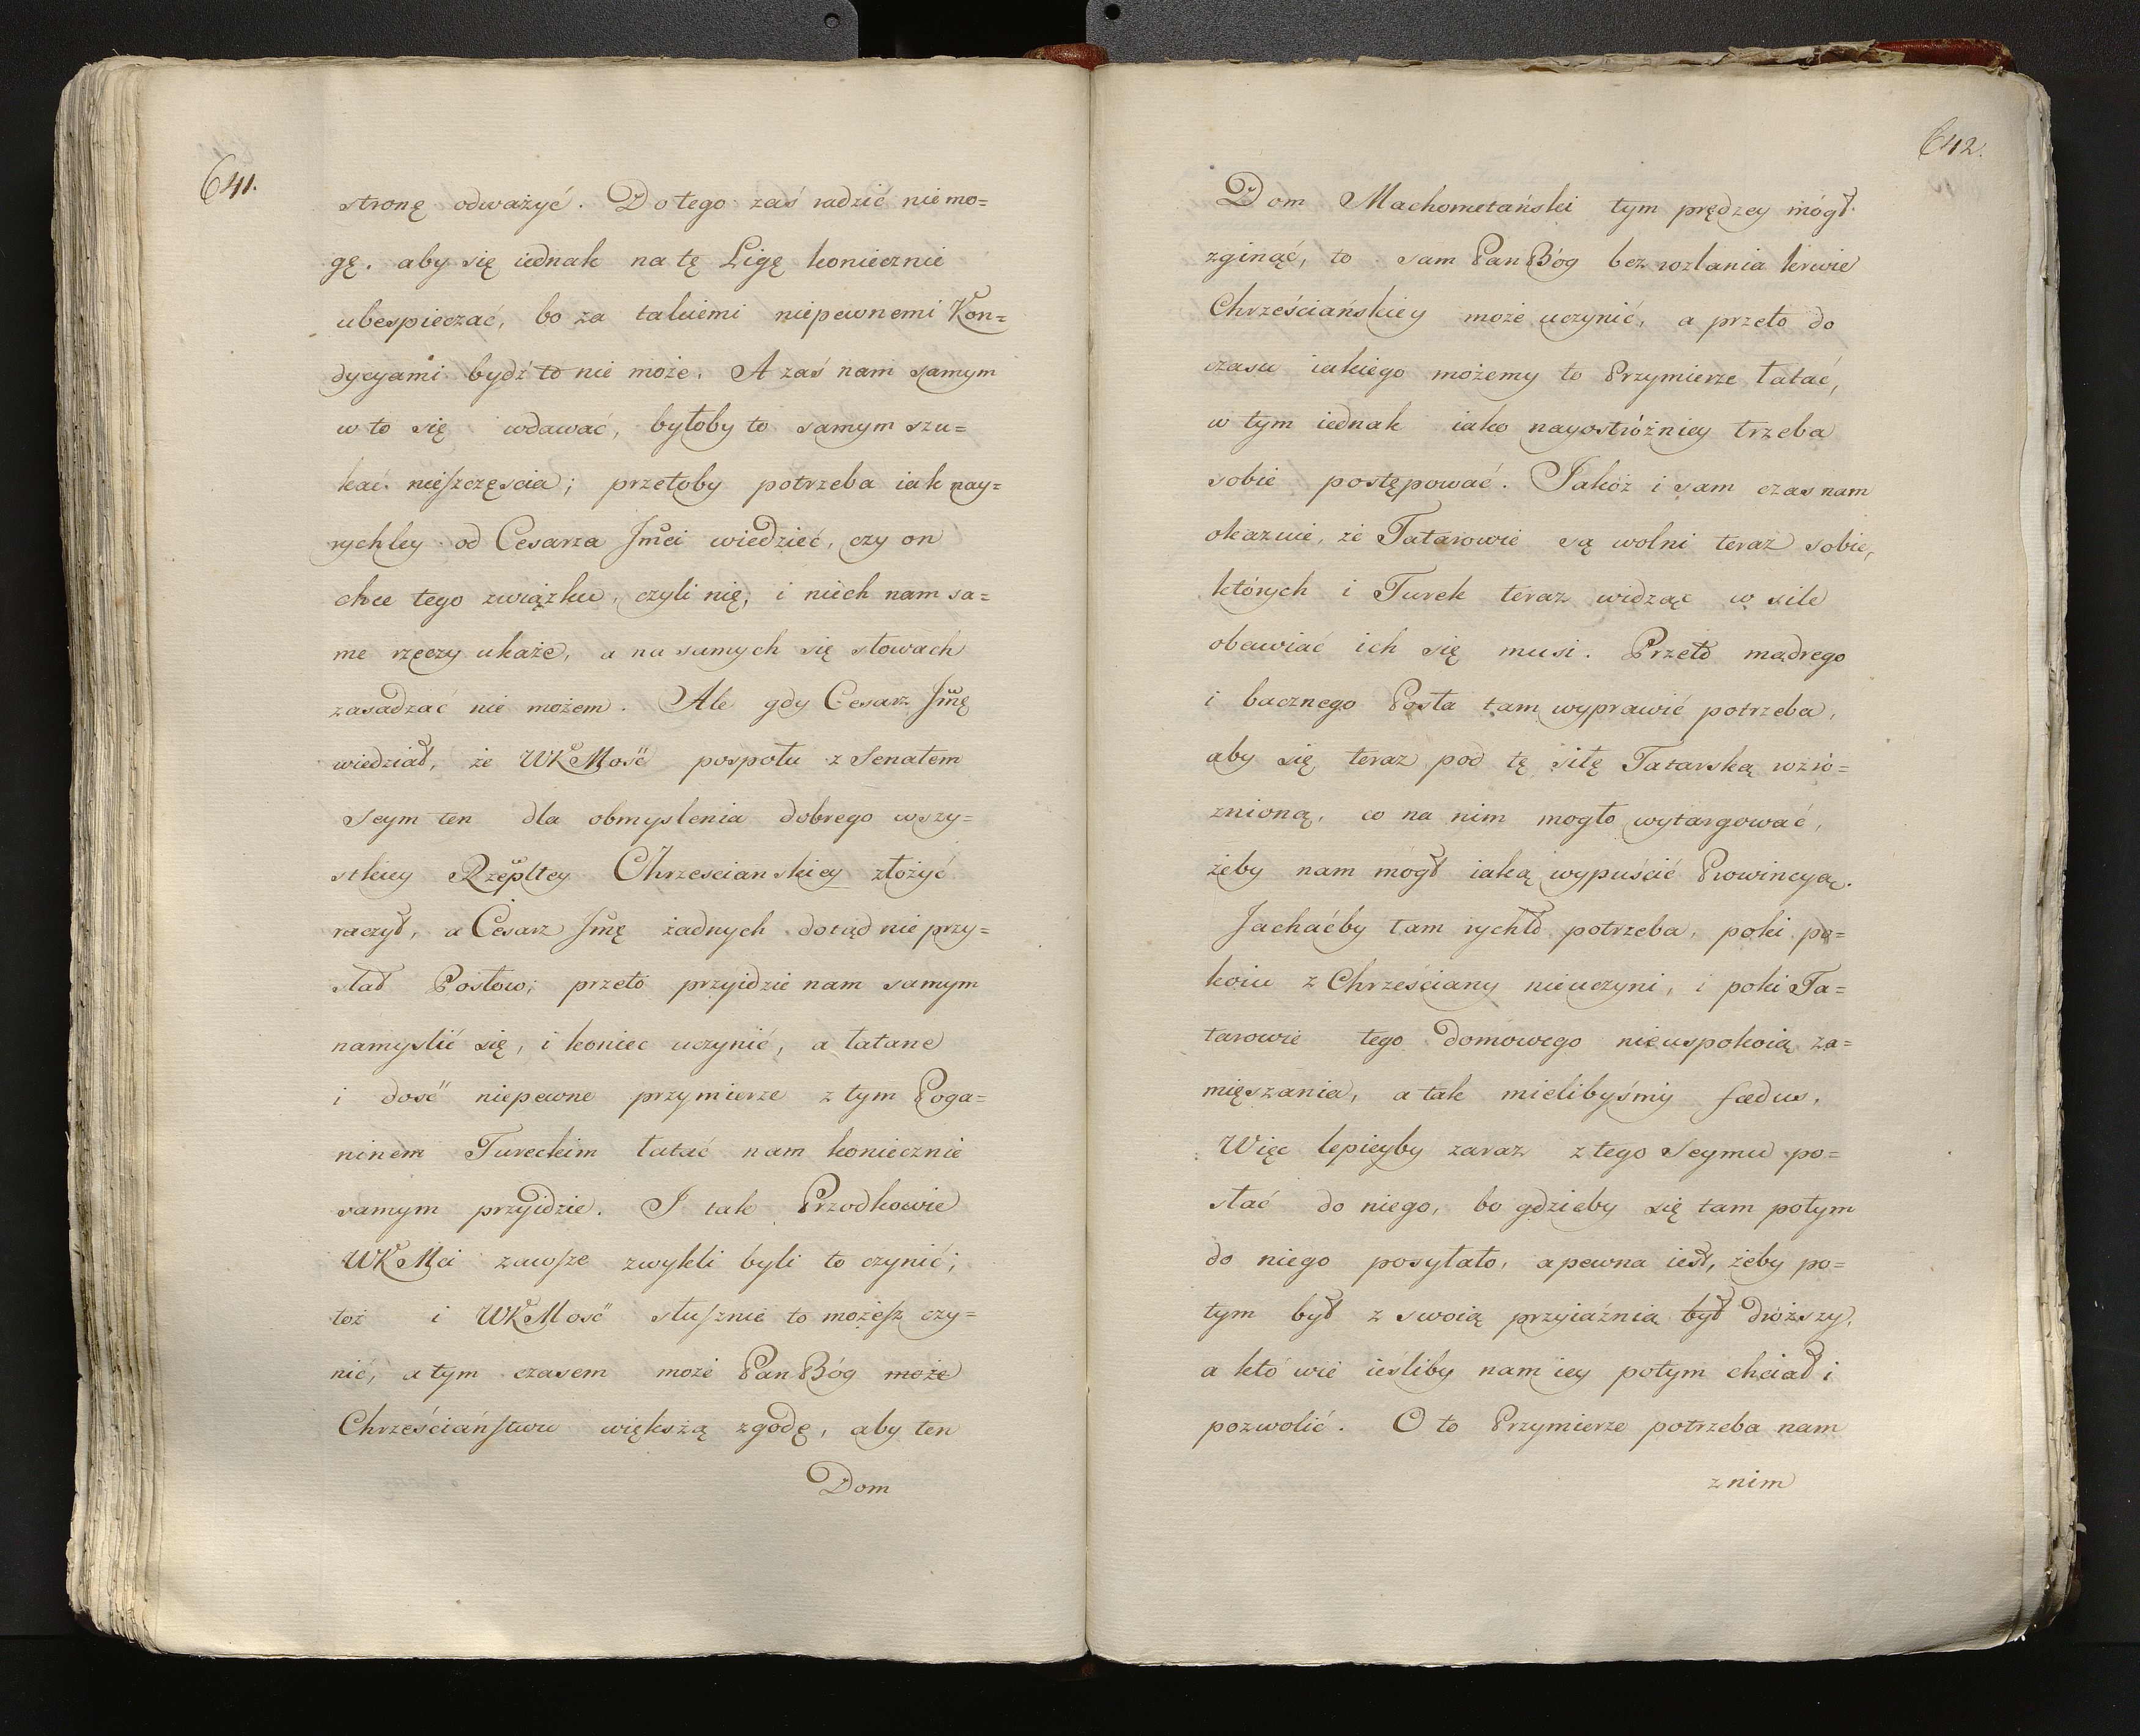 641.
stronę odważyć. Do tego zaś radzić nie mo=
gę. aby się iednak na tę Ligę koniecznie
ubespieczać, bo za takiemi niepewnemi Kon=
dycyami bydź to nie może. A zaś nam samym
w to się wdawać, byłoby to samym szu=
kać nieszczęscia; przetoby potrzeba iak nay=
rychley od Cesarza Jmci wiedzieć, czy on
chce tego związku, czyli nię, i niech nam sa=
me rzęczy ukaże, a na samych się słowach
zasadzać nie możem. Ale gdy Cesarz Jmę
wiedział, że WKMość pospołu z Senatem
Seym ten dla obmyslenia dobrego wszy=
stkiey Rzepltey Chrzescianskiey złożyć
raczył, a Cesarz Jmę żadnych dotąd nie przy=
słał Posłow; przeto przyidzie nam samym
namyslić się, i koniec uczynić, a łatane
i dość niepewne przymierze z tym Poga=
ninem Tureckim łatać nam koniecznie
samym przyidzie. I tak Przodkowie
WKMci zawsze zwykli byli to czynić;
toż i WKMość słusznie to możesz czy=
nić, a tym czasem może Pan Bóg może
Chrześciaństwu większą zgodę, aby ten
Dom
642.
Dom Machometański tym prędzey mógł
zginąć, to sam Pan Bóg bez rozlania krwie
Chrześciańskiey może uczynić, a przeto do
czasu iakiego możemy to Przymierze łatać,
w tym iednak iako nayostróżniey trzeba
sobie postępować. Jakóż i sam czas nam
okazuie, że Tatarowie są wolni teraz sobie,
których i Turek teraz widząc w sile
obawiać ich się musi. Przeto mądrego
i bacznego Posła tam wyprawić potrzeba,
aby się teraz pod tę siłę Tatarską wzró=
znioną, co na nim mogło wytargować,
żeby nam mógł iaką wypuścić Prowincyą.
Jachaćby tam rychło potrzeba, poki po=
koiu z Chrześciany nieuczyni, i poki Ta=
tarowie tego domowego nieuspokoią za=
mięszania, a tak mielibyśmy fœdus.
Więc lepieyby zaraz z tego Seymu po=
słać do niego, bo gdzieby się tam potym
do niego posyłało, a pewna iest, żeby po=
tym był z swoią przyiaźnią był dróższy,
a kto wie ieśliby nam iey potym chciał i
pozwolić. O to Przymierze potrzeba nam
z nim